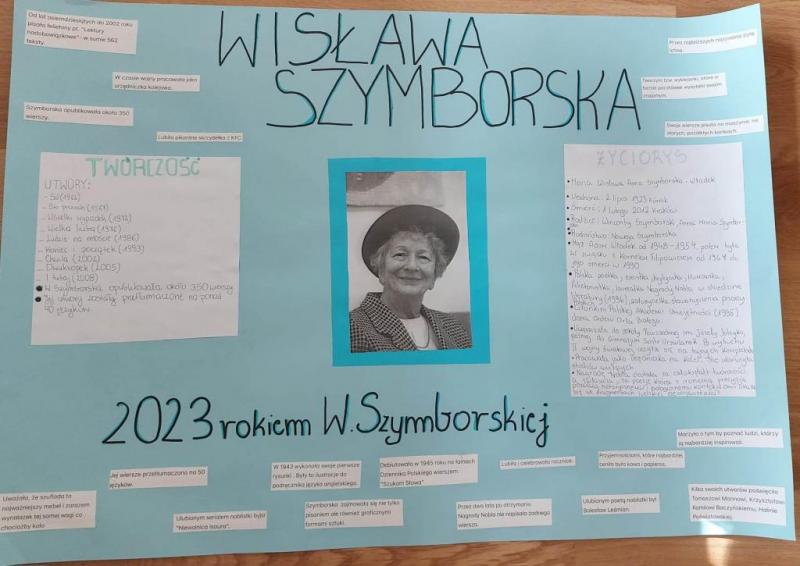 Od lat osiemdziesiątych do 2002 roku
pisała felietony pt. "Lektury
nadobowiązkowe" - w sumie 562
teksty.
WISŁAWA
SZYMBORSKA
W czasie wojny pracowała jako
urzędniczka kolejowa.
Szymborska opublikowała około 350
wierszy.
Lubiła pikantne skrzydełka z KFC.
Przez najbliższych nazywana była
Ichna.
Tworzyła tzw. wyklejanki, które w
formie pocztówek wysyłała swoim
znajomym.
Swoje wiersze pisała na maszynie, na
starych, pożółkłych kartkach.
TWÓRCZOŚĆ
UTWORY:
- Sól (1962)
- Sto pociech (1967)
- Wszelki wypadek (1972)
- Wielka liczba (1976)
- Ludzie na moście (1986)
- Koniec i początek (1993)
- Chwila (2002)
- Dwukropek (2005)
- Tutaj (2008)
W Szymborska opublikowała około 350 wierszy
Jej utwory zostały przetłumaczone na ponad
40 języków.
ŻYCIORYS
Maria Wisława Anna Szymborska - Włodek
Urodzona: 2 lipca 1923 Kórnik
Śmierć: 1 lutego 2012 Kraków
Rodzice: Wincenty Szymborski, Anna Maria Szymbor-
ska
Rodzeństwo: Nawoja Szymborska
Mąż Adam Włodek od 1948-1954, potem była
w związku z Kornelem Filipowiczem od 1967 do
jego śmierci w 1990
Polska poetka, eseistka,
felietonistka, laureatka Nagrody Nobla w dziedzinie
literatury (1996), założycielka Stowarzyszenia Pisarzy
Polskich
Członkini Polskiej Akademii Umiejętności (1995)
Dama Orderu Orła Białego.
2023 rokiem W. Szymborskiej
Marzyła o tym by poznać ludzi, którzy
ją najbardziej inspirowali.
Jej wiersze przetłumaczono na 50
języków.
W 1943 wykonała swoje pierwsze
rysunki . Były to ilustracje do
podręcznika języka angielskiego.
Debiutowała w 1945 roku na łamach
Dziennika Polskiego wierszem
"Szukam Słowa"
Lubiła i celebrowała rocznice.
Przyjemnościami, które najbardziej
ceniła była kawa i papieros.
Uważała, że szuflada to
najważniejszy mebel i zarazem
wynalazek tej samej wagi co
chociażby koło
Ulubionym serialem noblistki była
"Niewolnica Isaura".
Szymborska zajmowała się nie tylko
pisaniem ale również graficznymi
formami sztuki.
Przez dwa lata po otrzymaniu
Nagrody Nobla nie napisała żadnego
wiersza.
Ulubionym poetą noblistki był
Bolesław Leśmian.
Kilka swoich utworów poświęciła
Tomaszowi Mannowi, Krzysztofowi
Kamilowi Baczyńskiemu, Halinie
Poświatowskiej.